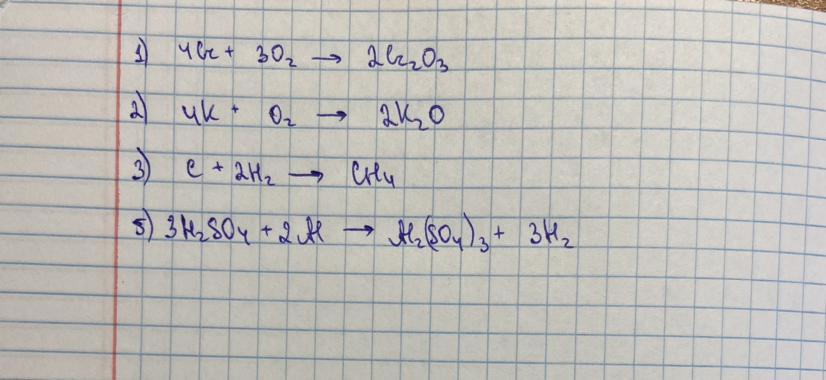 1) 4Cr + 3O₂ → 2Cr₂O₃
2) 4K + O₂ → 2K₂O
3) C + 2H₂ → CH₄
5) 3H₂SO₄ + 2Al → Al₂(SO₄)₃ + 3H₂